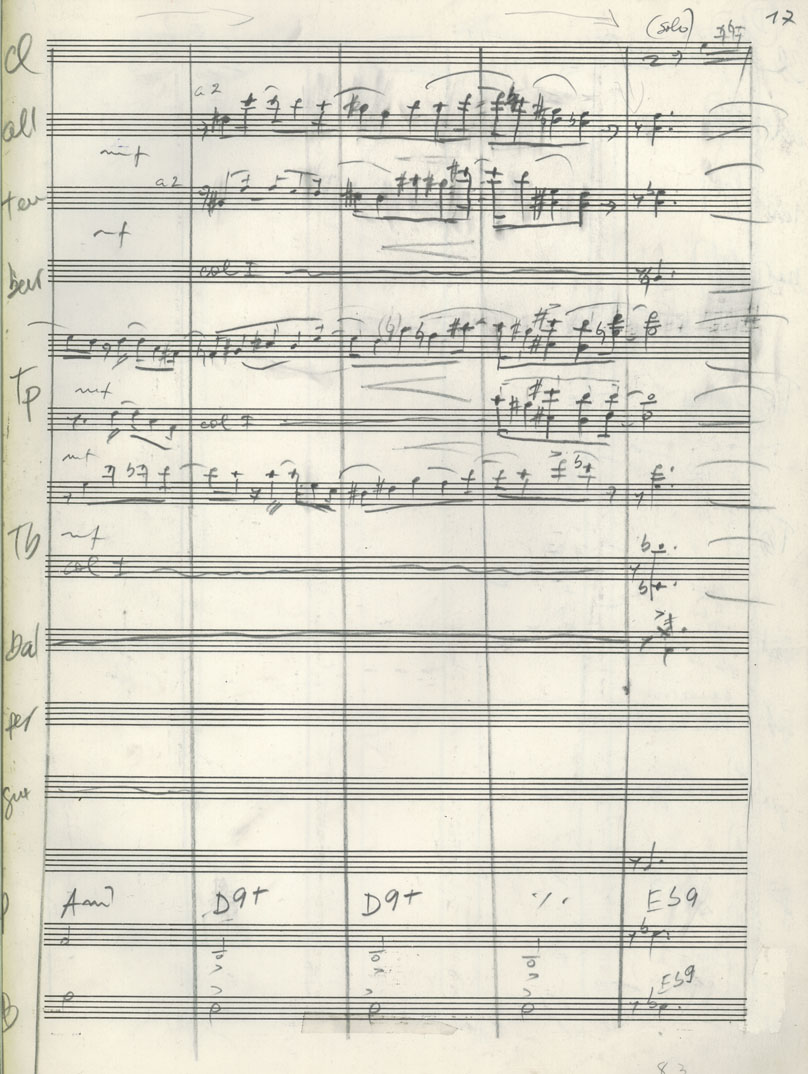 (Solo) 17
Cl
a2
all
mf
a2
ten
mf
bar
col I
Tp
mf
col I
mf
Tb
mf
col I
Bat
per
gut
Am7 D9+ D9+ ٪ Eb9
Eb9
B
83